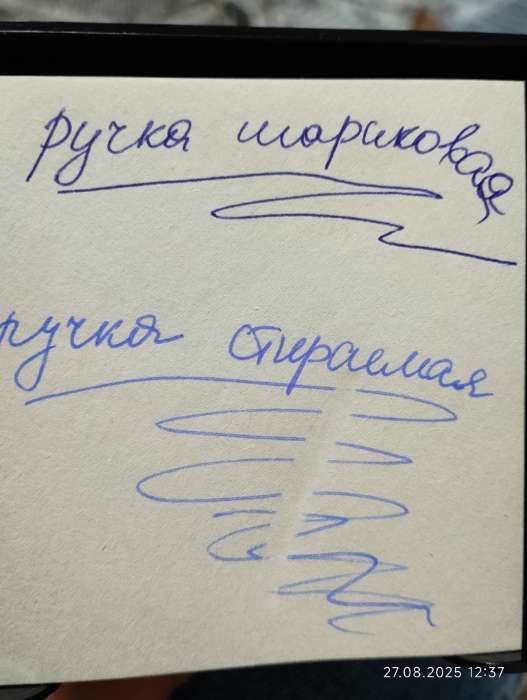 ручка шариковая
ручка стираемая
27.08.2025 12:37